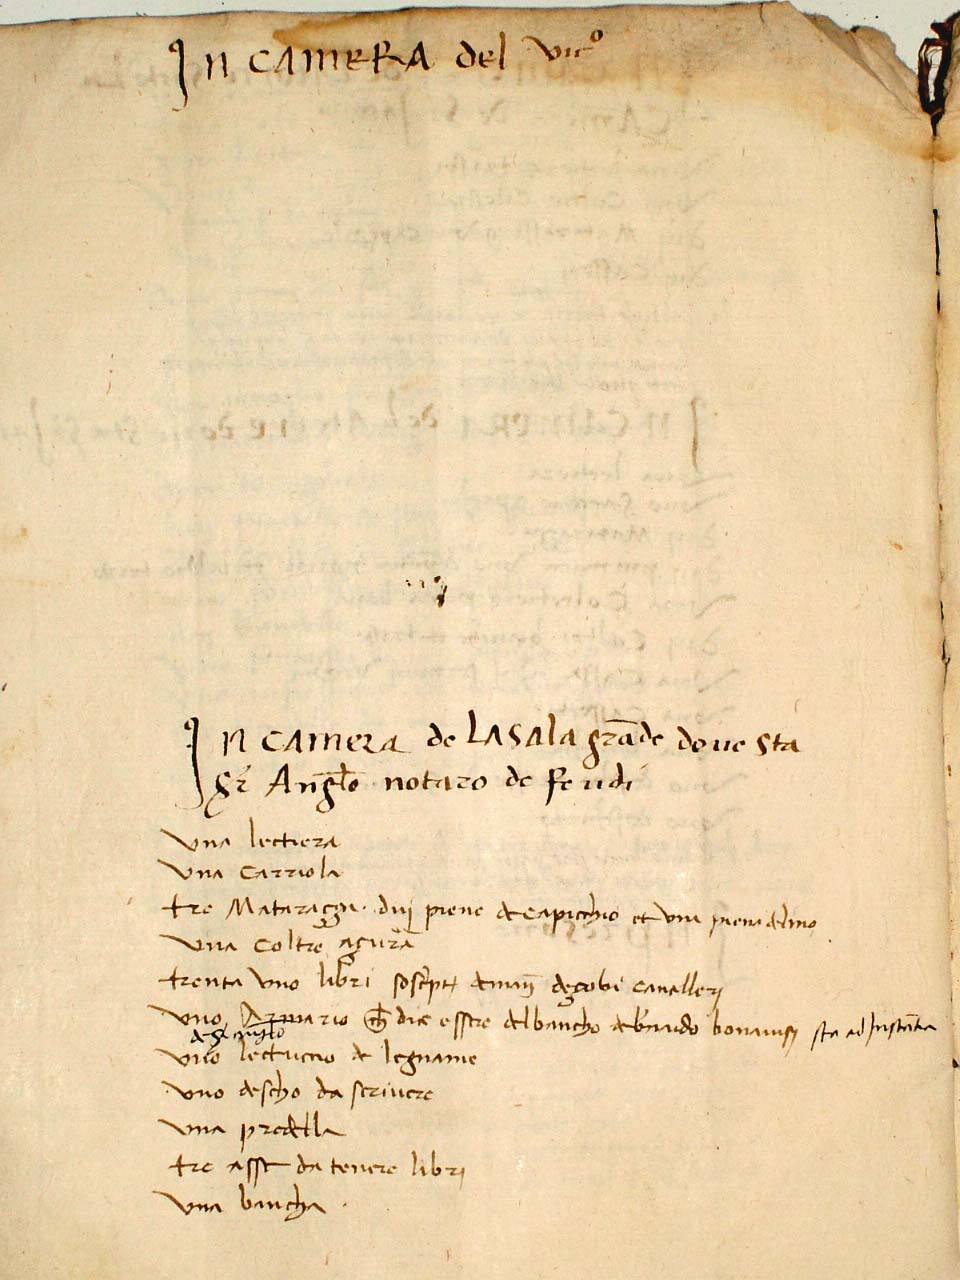 In camera del Vic°
In camera de la sala grāde doue sta
Sr Anglo notaro de feudi
Vna lectiera
Vna carriola
tre Mataragii duj piene de capiccho et vnu piena de lino
Vna coltre
trenta vno libri de canalleri
Vno Armario che dice essere del bancho de bonauisj sta ad Instātia
Vno lectuccio de legname
Vno descho da scriuere
Vna predella
tre asse da tenere libri
Vna bancha